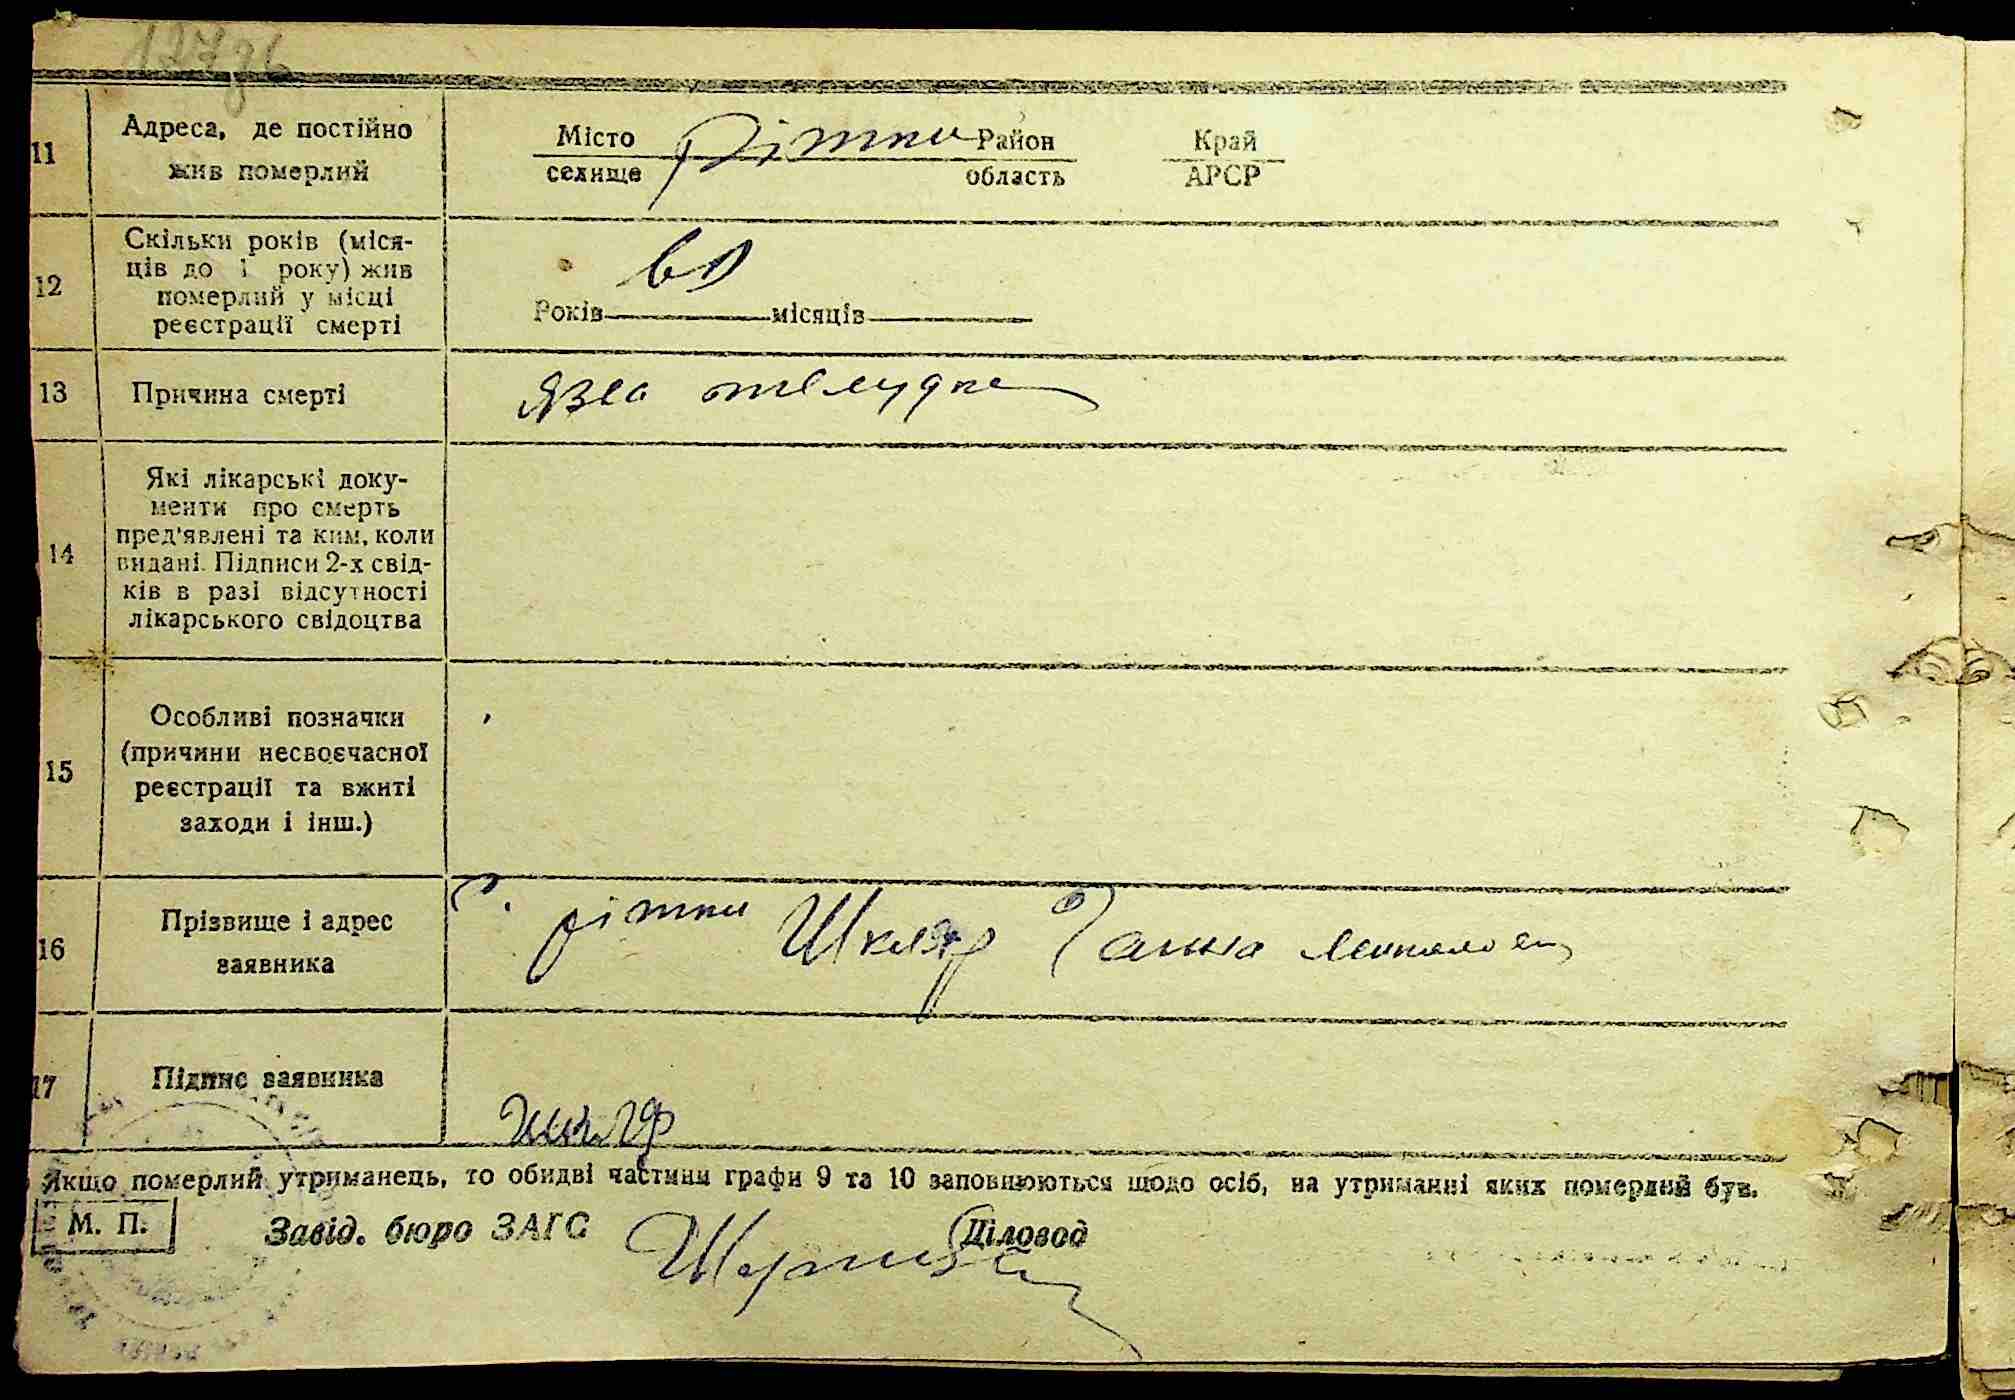 11
Адреса, де постійно
жив померлий
Місто
селище
Рітки
Район
область
Край
АРСР
12
Скільки років (міся-
ців до 1 року) жив
померлий у місці
реєстрації смерті
60
Років місяців
13
Причина смерті
Язва желудка
14
Які лікарські доку-
менти про смерть
пред'явлені та ким, коли
видані. Підписи 2-х свід-
ків в разі відсутності
лікарського свідоцтва
15
Особливі позначки
(причини несвоєчасної
реєстрації та вжиті
заходи і інш.)
16
Прізвище і адрес
заявника
с. Рітки Шкляр Ганна
17
Підпис заявника
Шкляр
Якщо померлий утриманець, то обидві частини графи 9 та 10 заповнюються щодо осіб, на утриманні яких померлий був.
М. П.
Завід. бюро ЗАГС
Діловод